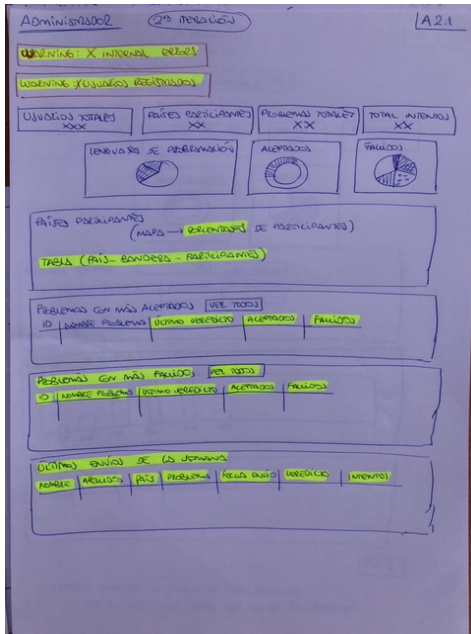 ADMINISTRADOR (2ª ITERACIÓN) A2.1
WARNING: X INTERNAL ERRORS
WARNING: X USUARIOS REGISTRADOS
USUARIOS TOTALES PAÍSES PARTICIPANTES PROBLEMAS TOTALES TOTAL INTENTOS
XXX XX XX XX
LENGUAJES DE PROGRAMACIÓN ACEPTADOS FALLIDOS
PAÍSES PARTICIPANTES
(MAPA → PORCENTAJES DE PARTICIPANTES)
TABLA (PAÍS - BANDERA - PARTICIPANTES)
PROBLEMAS CON MÁS ACEPTADOS VER TODOS
ID NOMBRE PROBLEMA ÚLTIMO VEREDICTO ACEPTADOS FALLIDOS
PROBLEMAS CON MÁS FALLIDOS VER TODOS
ID NOMBRE PROBLEMA ÚLTIMO VEREDICTO ACEPTADOS FALLIDOS
ÚLTIMOS ENVÍOS DE LA SEMANA
NOMBRE APELLIDOS PAÍS PROBLEMA FECHA ENVÍO VEREDICTO INTENTOS